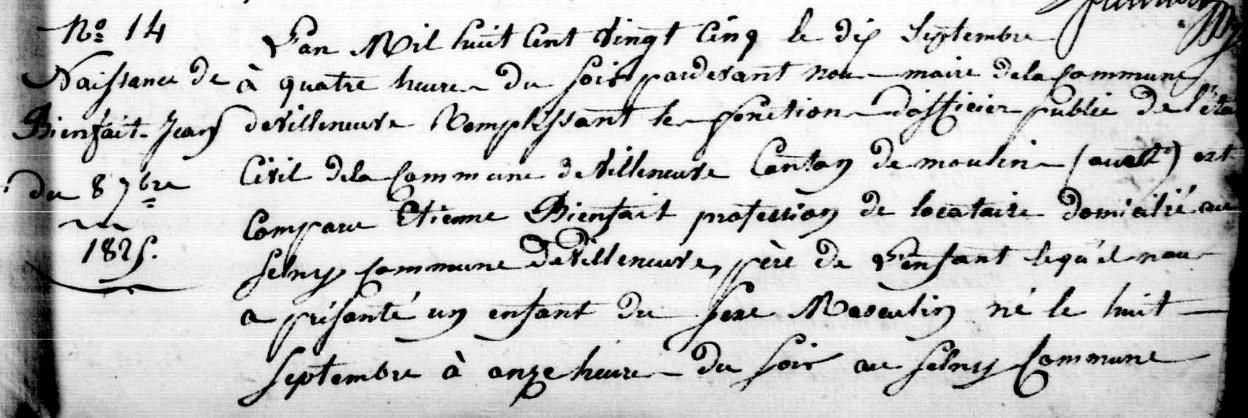 No 14
Naissance de
Bienfait Jean
du 8 7bre
1825.
L'an Mil huit Cent Vingt Cinq le dix Septembre
à quatre heure du soir pardevant nous maire de la Commune
de Villeneuve Remplissant les fonctions d'officier public de l'état
Civil de la Commune de Villeneuve Canton de moulins (ouest) est
Comparu Etienne Bienfait profession de locataire domicilié au
Selny Commune de Villeneuve, père de L'enfant lequ'el nous
a présenté un enfant du Sexe Masculin né le huit
Septembre à onze heure du soir au Selny Commune